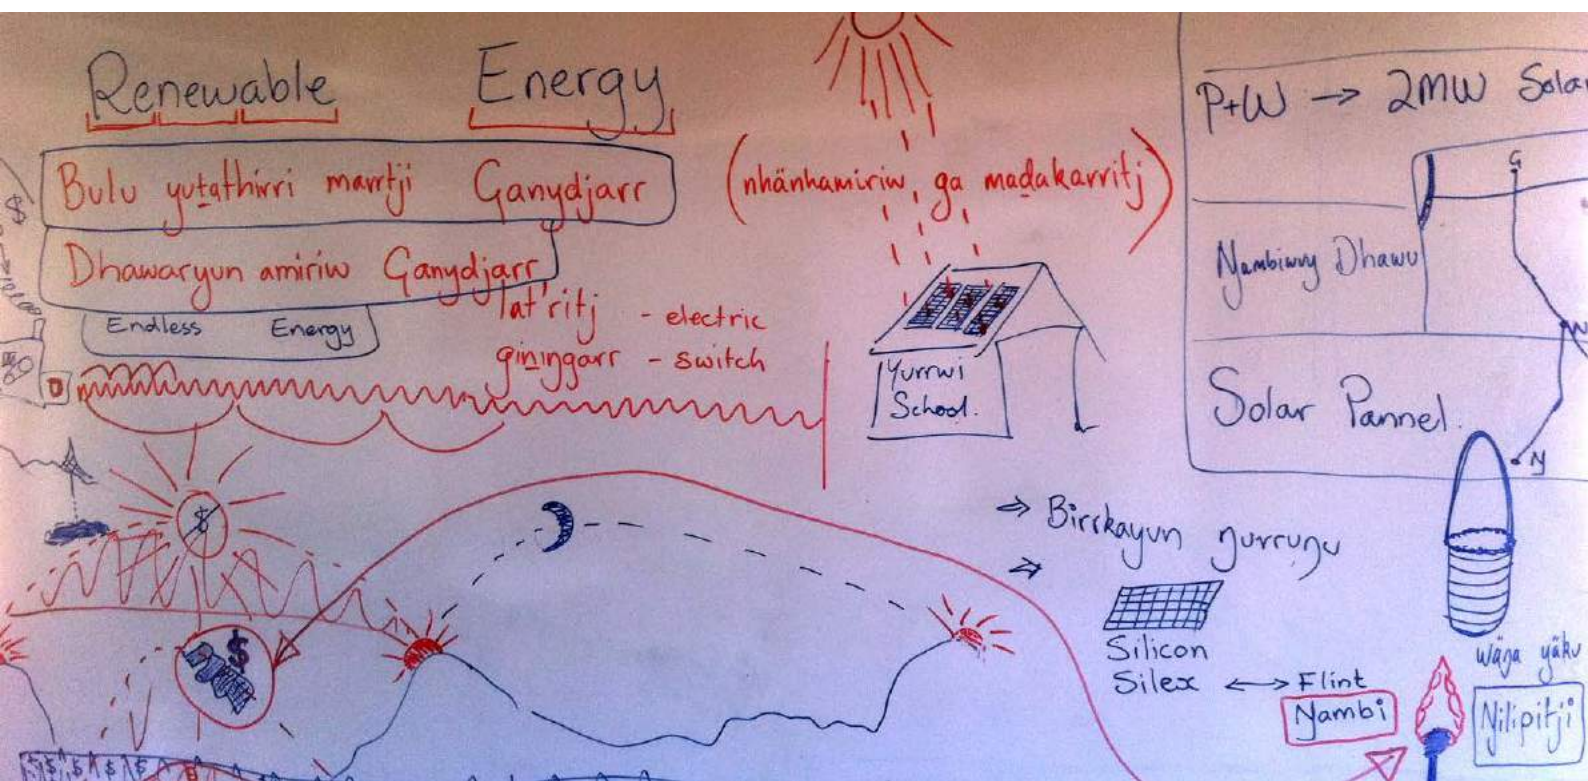 Renewable Energy
Bulu yuṯathirri marrtji Ganydjarr
Dhawaryun amiriw Ganydjarr
Endless Energy
lat'ritj - electric
giningarr - switch
(nhänhamiriw, ga maḏakarritj)
Yurrwi
School.
P+W → 2MW Solar
Ŋambiwuy Dhawu
G
N
Solar Pannel.
⇒ Birrkayun ŋurruŋu
⇒
Silicon
Silex ↔ Flint
Ŋambi
wäŋa yäku
Ŋilipitji
$
$
$ $ $ $